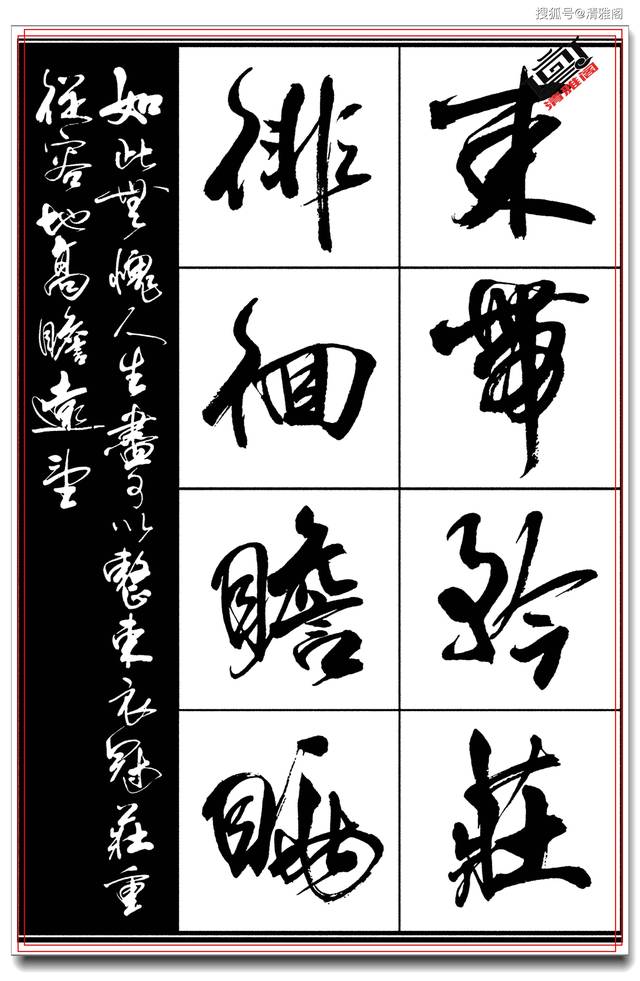 搜狐号@清雅阁
清雅阁
束帶矜莊
徘徊瞻眺
如此無愧人生盡可以整束衣冠莊重
從容地高瞻遠望